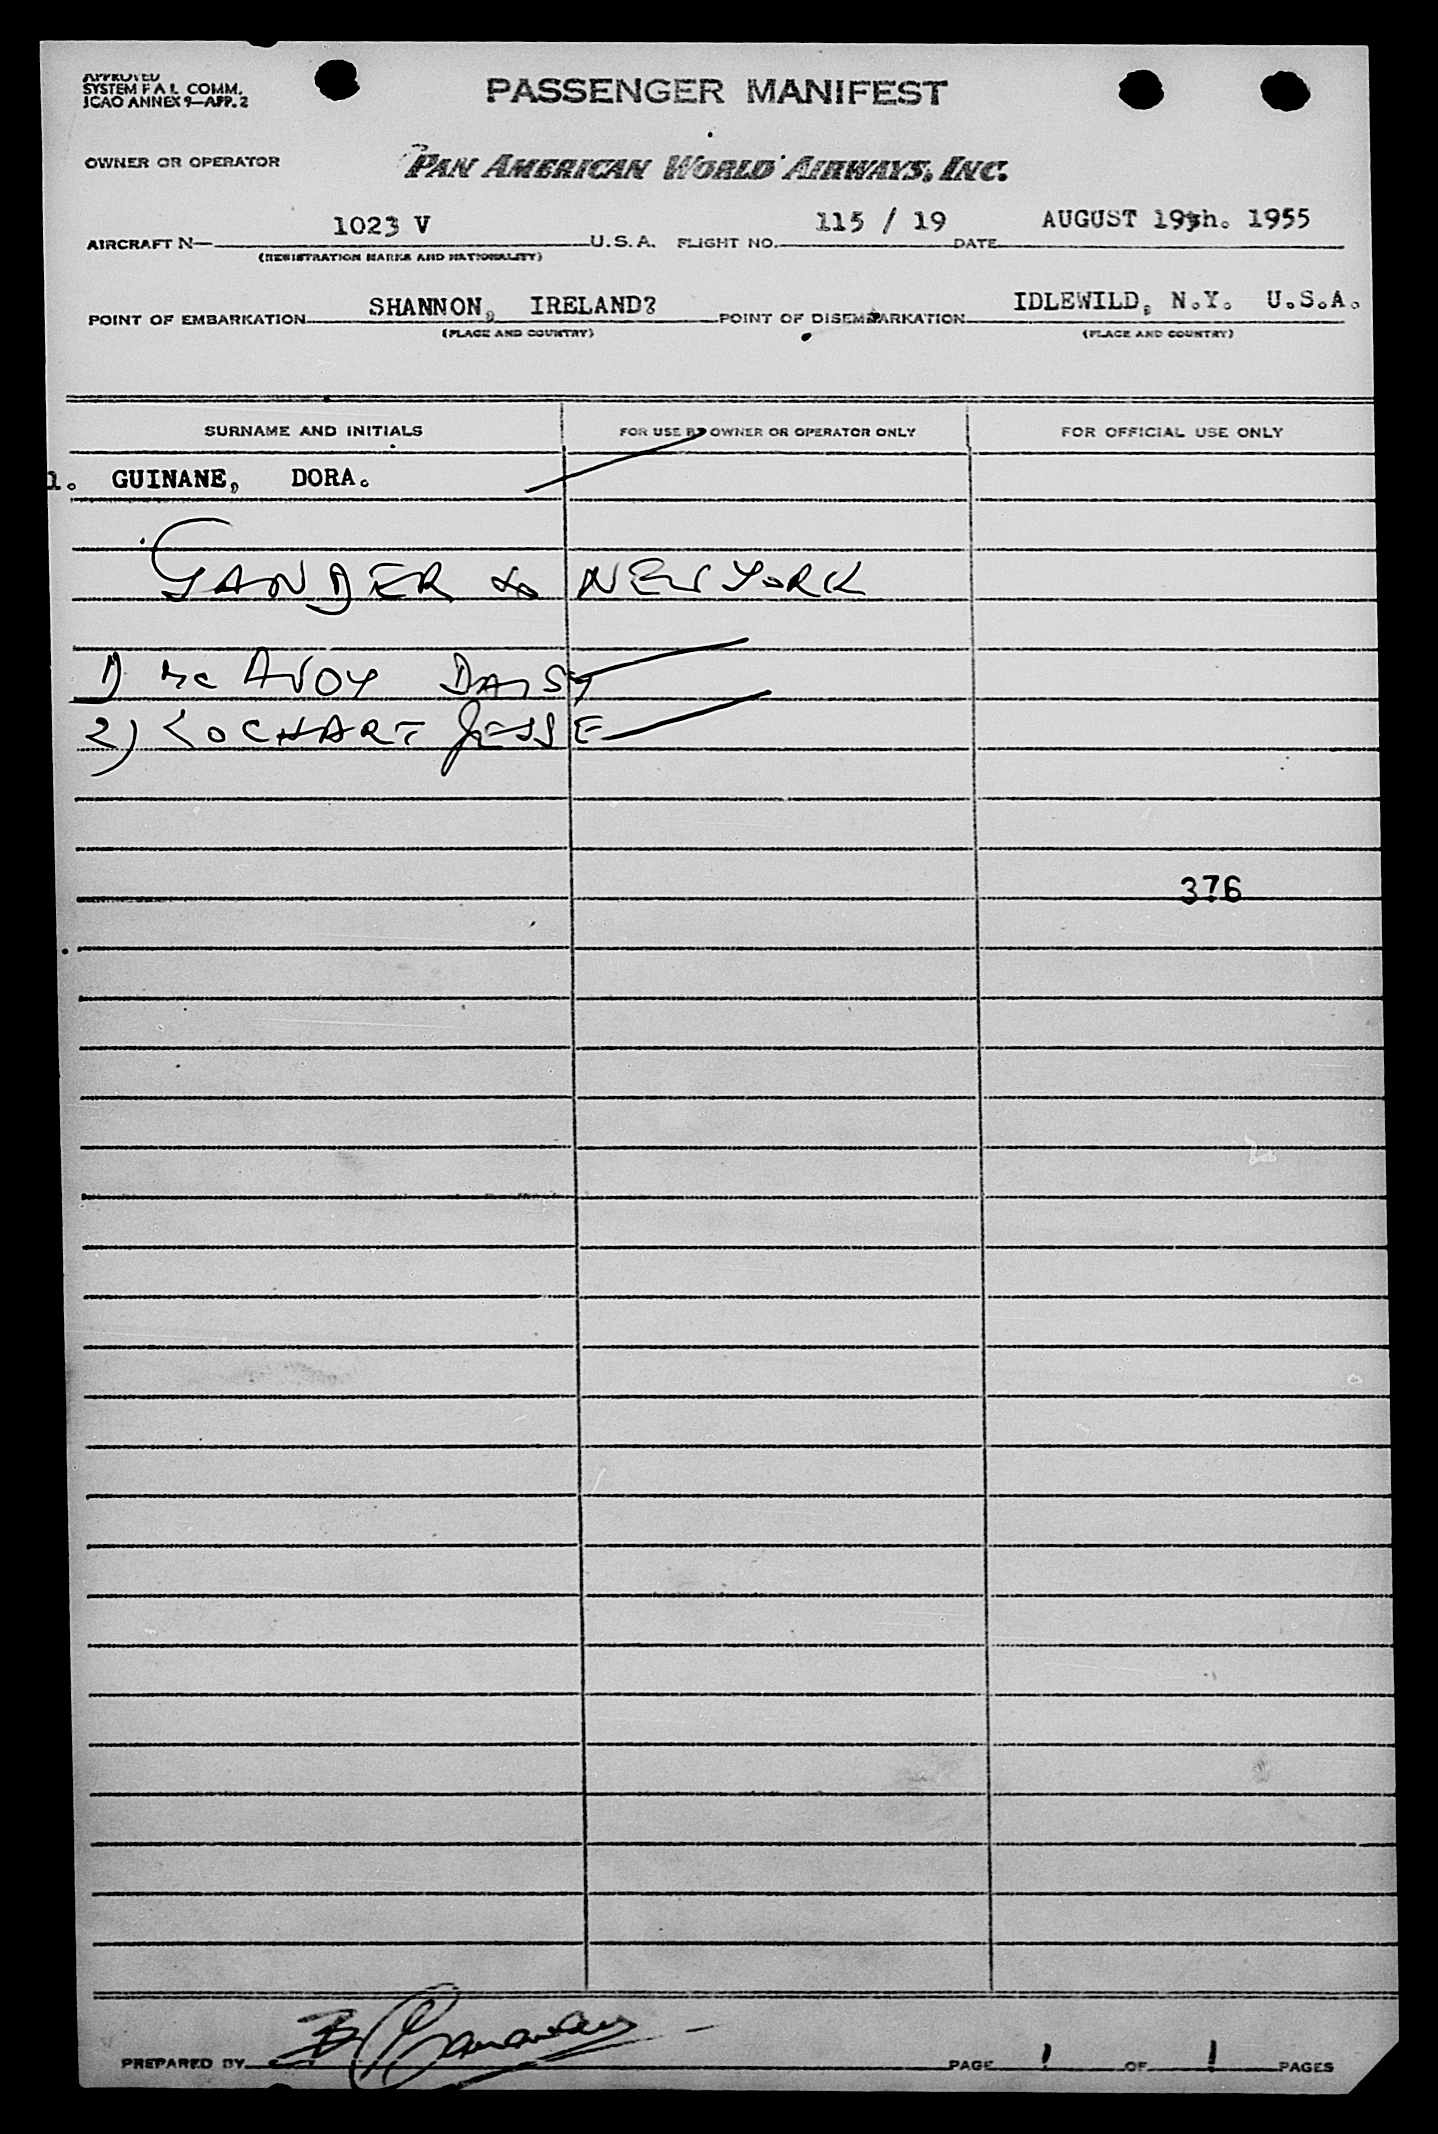 APPROVED
SYSTEM F A L COMM.
ICAO ANNEX 9—APP. 2
PASSENGER MANIFEST
OWNER OR OPERATOR
PAN AMERICAN WORLD AIRWAYS, INC.
AIRCRAFT N— 1023 V U.S.A. FLIGHT NO. 115 / 19 DATE AUGUST 19th. 1955
(REGISTRATION MARKS AND NATIONALITY)
POINT OF EMBARKATION SHANNON, IRELAND? POINT OF DISEMBARKATION IDLEWILD, N.Y. U.S.A.
(PLACE AND COUNTRY) (PLACE AND COUNTRY)
SURNAME AND INITIALS FOR USE BY OWNER OR OPERATOR ONLY FOR OFFICIAL USE ONLY
1. GUINANE, DORA.
GANDER to NEW YORK
1) Mc AVOY DAISY
2) LOCHART JESSE
376
PREPARED BY PAGE 1 OF 1 PAGES